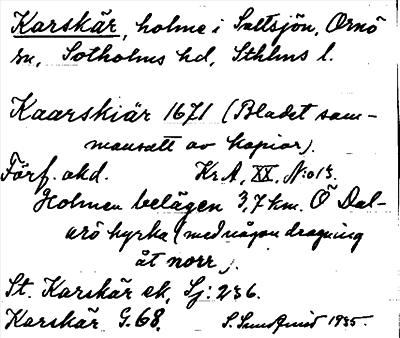 Karskär, holme i Saltsjön, Ornö
sn, Sotholms hd, Sthlms l.
Kaarskiär 1671 (Bladet sam-
mansatt av kopior).
Förf. okd. Kr.A. XX. N:o 13.
Holmen belägen 3,7 km. Ö Dal-
arö kyrka (med någon dragning
åt norr).
St. Karskär ek, Sj: 236.
Karskär G. 68. S. Sundquist 1935.